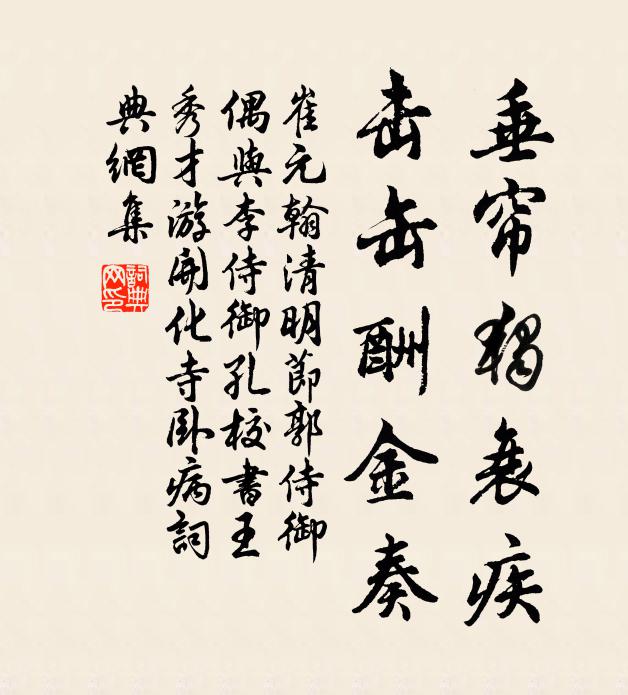 垂帘独衰疾
击缶酬金奏
崔元翰清明節郭侍御
偶與李侍御孔校書王
秀才游開化寺卧病詞
典網集
詞典網印